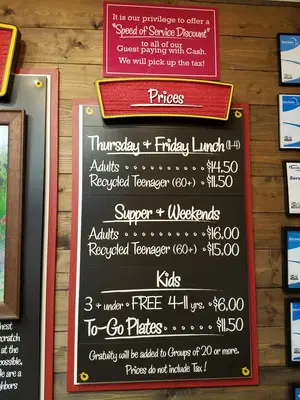 It is our privilege to offer a
"Speed of Service Discount"
to all of our
Guest paying with Cash.
We will pick up the tax!
Prices
Thursday + Friday Lunch (11-4)
Adults $14.50
Recycled Teenager (60+) $11.50
Supper + Weekends
Adults $16.00
Recycled Teenager (60+) $15.00
Kids
3 + under FREE 4-11 yrs. $6.00
To-Go Plates $11.50
Gratuity will be added to Groups of 20 or more.
Prices do not include Tax!
scratch
at the
possible,
le are a
ghbors